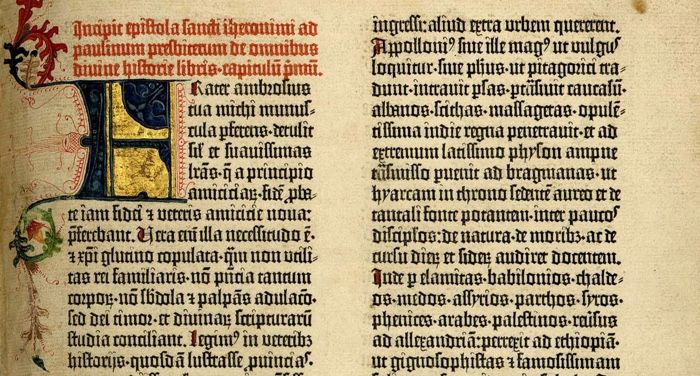 Incipit epistola sancti iheronimi ad
paulinum presbiterum de omnibus
divine historie libris·capitulū pmū.
Frater ambrosius
tua michi munus-
cula pferens·detulit
sił et suavissimas
lrās·q̄ a principio
amiciciaꝝ·fidē pba-
te iam fidei ⁊ veteris amicicie noua:
pferebant. Uera eni illa necessitudo ē·
⁊ xpi glutino copulata·qm̄ non vtili-
tas rei familiaris·nō pn̄cia tantum
corpoꝝ·nō sbdola ⁊ palpās adulaco·
sed dei timoꝝ·et divinaꝝ scripturarū
studia conciliant. Legim⁹ in veterib⁹
historijs·quosdā lustrasse puincias·
ingressi:aliud extra urbem quererent.
Appolloni⁹ sive ille mag⁹ ut vulgus
loquitur·sive phus·ut pitagorici tra-
dunt·intravit psas·ptrāsivit caucasū·
albanos·scithas·massagetas·opulē-
tissima indie regna penetravit·et ad
extremum latissimo physon ampne
trāsmisso puenit ad bragmanas·ut
hyarcam in throno sedentē aureo et de
tantali fonte potantem·inter paucos
discipłos:de natura·de morib⁹·ac de
cursu dieꝝ et sideꝝ audiret docentem.
Inde p elamitas·babilonios·chalde-
os·medos·assyrios·parthos·syros·
phenices·arabes·palestinos·reusus
ad allexandriā:perrexit ad ethiopiā·
ut gignosophistas ⁊ famosissimam